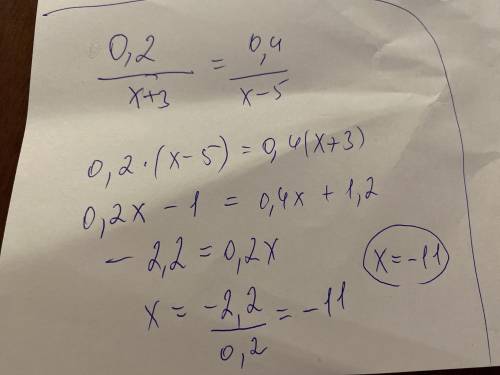 0,2 / x+3 = 0,4 / x-5
0,2·(x-5) = 0,4(x+3)
0,2x - 1 = 0,4x + 1,2
- 2,2 = 0,2x
x = -2,2 / 0,2 = -11
x = -11